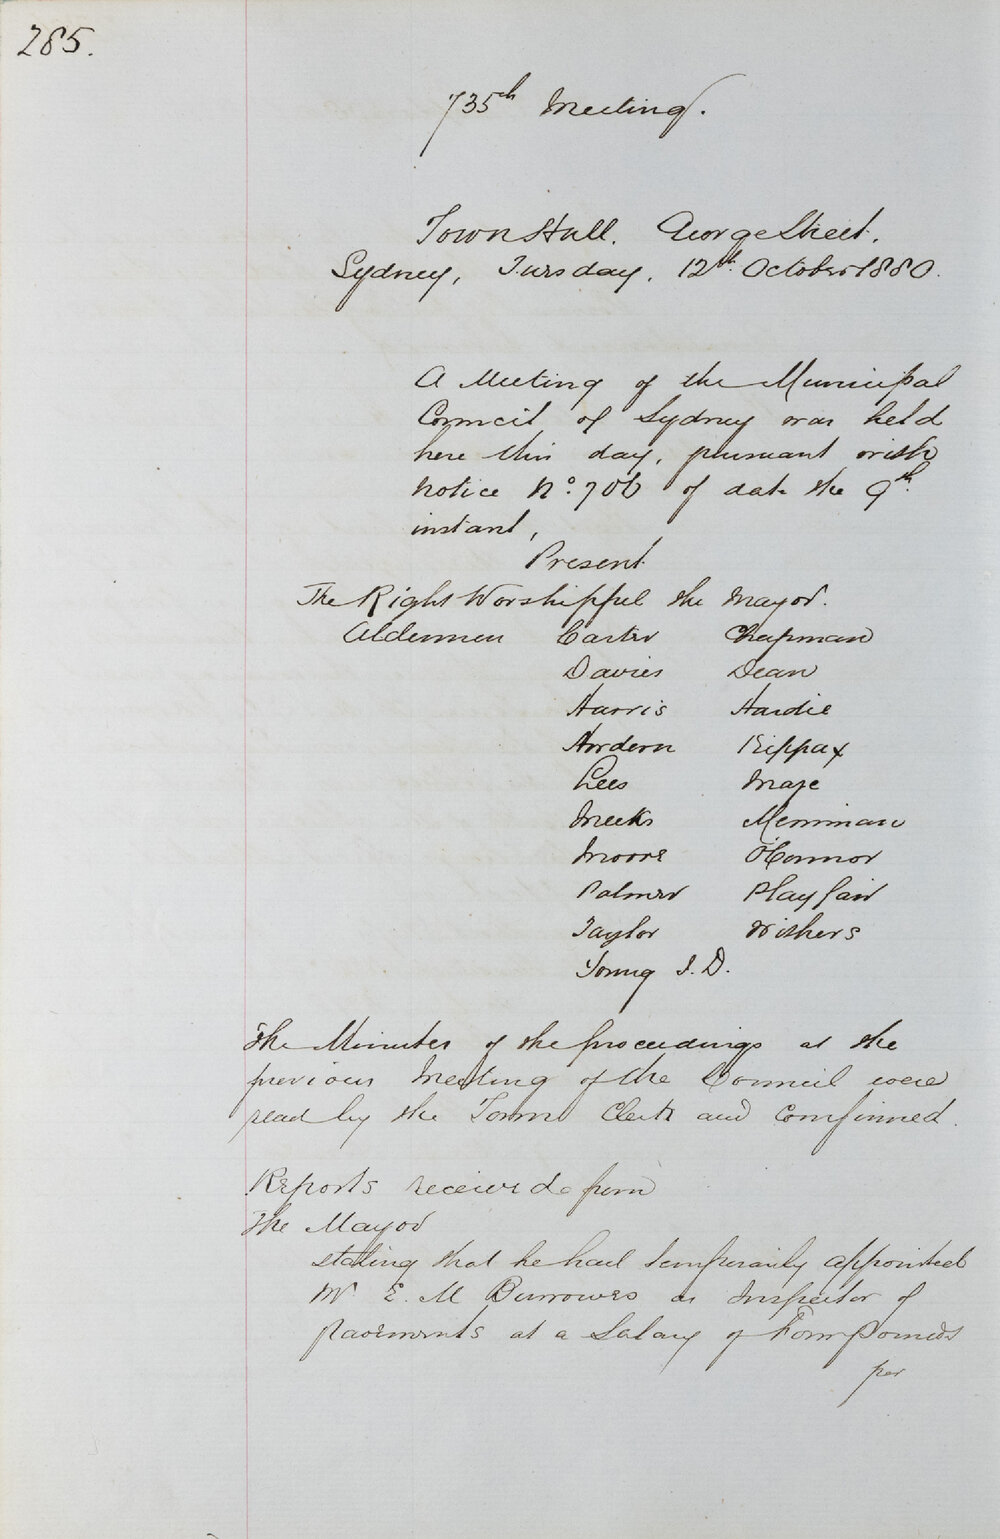 285.
735th Meeting.
Town Hall. George Street.
Sydney, Tuesday, 12th October 1880.
A Meeting of the Municipal
Council of Sydney was held
here this day, pursuant with
notice No. 706 of date the 9th
instant,
Present
The Right Worshipful the Mayor.
Aldermen Carter Chapman
Davies Dean
Harris Hardie
Hordern Kippax
Lees Maze
Meeks Merriman
Moore O'Connor
Palmer Playfair
Taylor Withers
Young J. D.
The Minutes of the proceedings at the
previous Meeting of the Council were
read by the Town Clerk and Confirmed.
Reports received from
The Mayor
stating that he had temporarily appointed
Mr E. M Burrowes as Inspector of
pavements at a Salary of Four Pounds
per